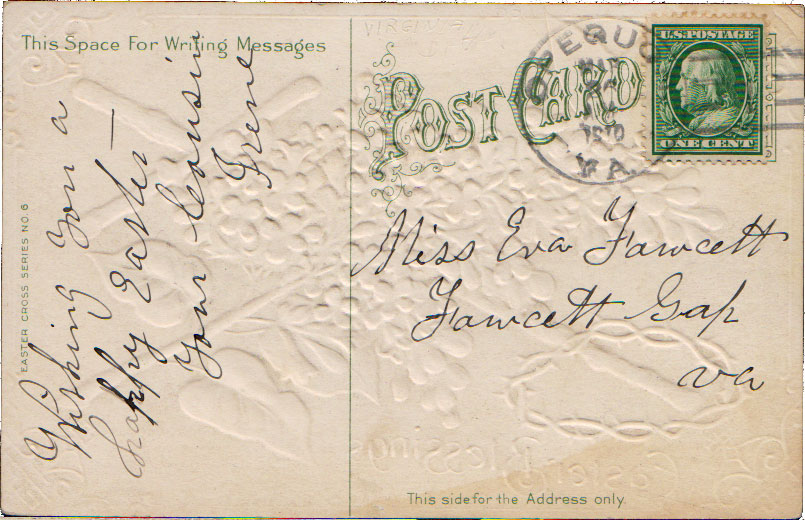 This Space For Writing Messages
Wishing you a
happy Easter —
Your Cousin
Irene
EASTER CROSS SERIES NO 6
VIRGINIA
POST CARD
1910
VA.
U.S. POSTAGE
ONE CENT
Miss Eva Fawcett
Fawcett Gap
Va
Easter Blessings
This side for the Address only.